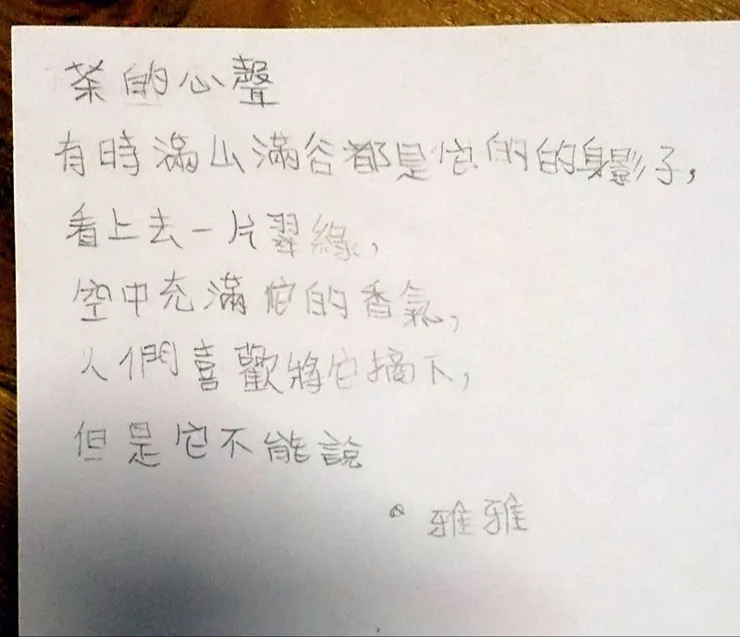 茶的心聲
有時滿山滿谷都是它的的身影子,
看上去一片翠緣,
空中充滿它的香氣,
人們喜歡將它摘下,
但是它不能說
。雅雅